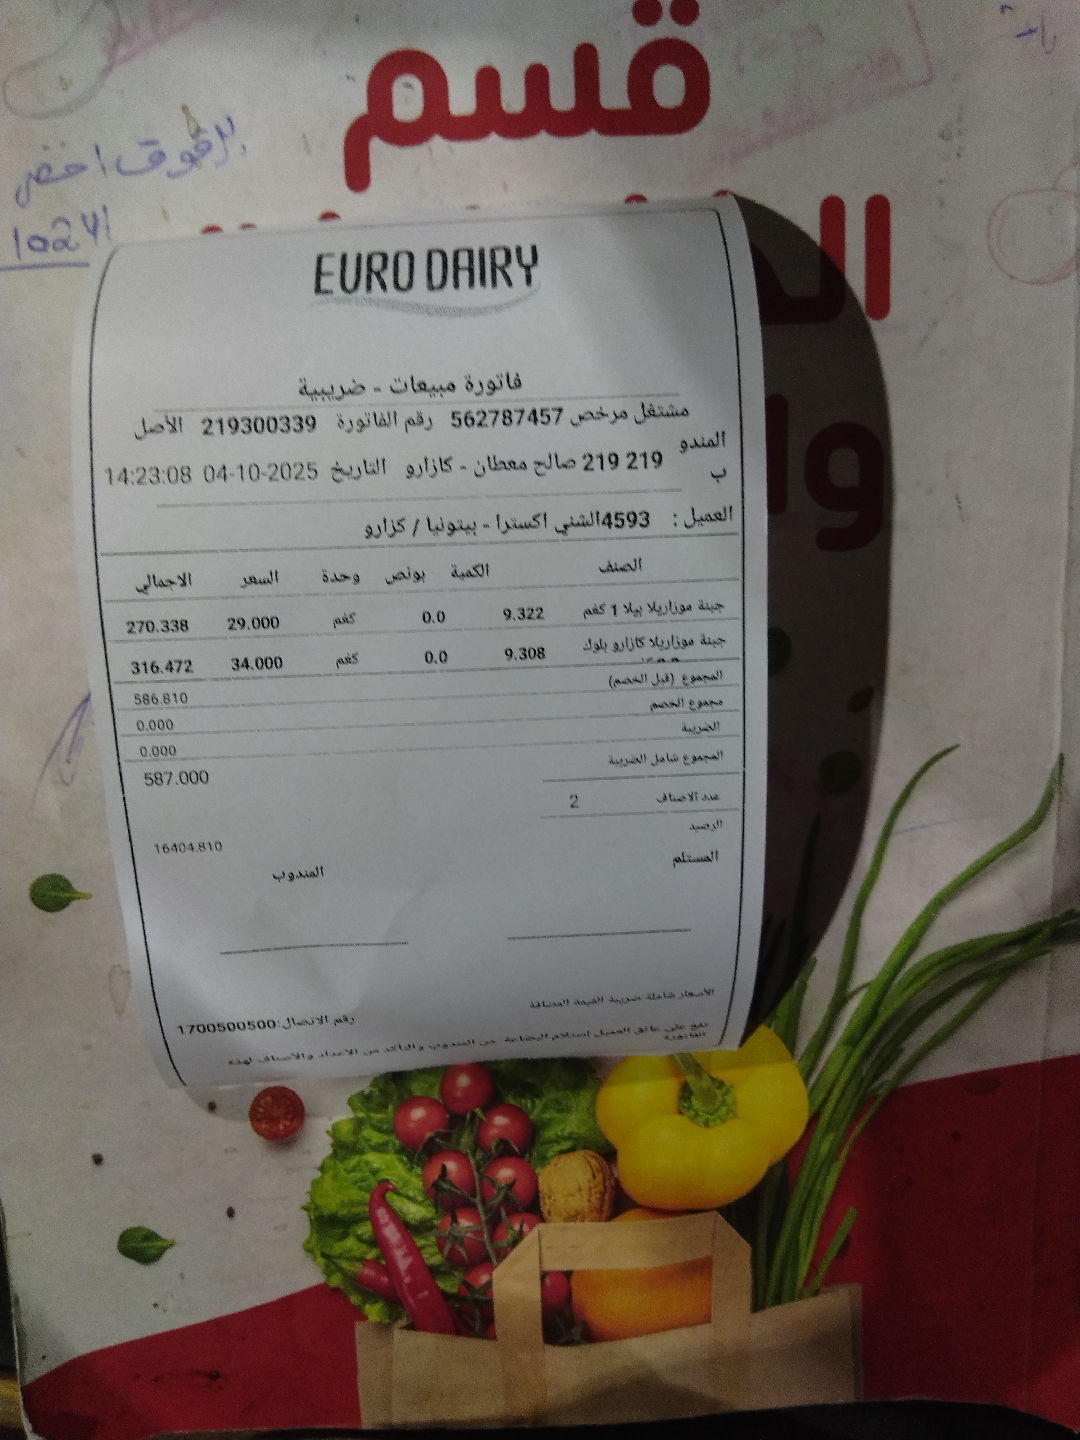 قسم
برقوق اخضر
EURO DAIRY
فاتورة مبيعات - ضريبية
مشتغل مرخص 562787457 رقم الفاتورة 219300339 الأصل
المندوب 219 219 صالح معطان - كازارو التاريخ 04-10-2025 14:23:08
العميل : 4593الشني اكسترا - بيتونيا / كزارو
الصنف الكمية بونص وحدة السعر الاجمالي
جبنة موزاريلا بيلا 1 كغم 9.322 0.0 كغم 29.000 270.338
جبنة موزاريلا كازارو بلوك 9.308 0.0 كغم 34.000 316.472
المجموع (قبل الخصم) 586.810
مجموع الخصم 0.000
الضريبة 0.000
المجموع شامل الضريبة 587.000
عدد الاصناف 2
الرصيد 16404.810
المستلم المندوب
الأسعار شاملة ضريبة القيمة المضافة
رقم الاتصال:1700500500
تقع على عاتق العميل إستلام البضاعة من المندوب والتأكد من الأعداد والأصناف لهذه الفاتورة